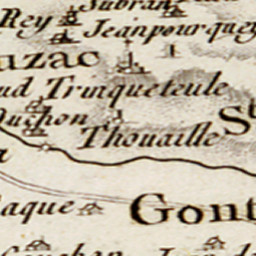 Subran
Rey
Jeanpourquey
uzac
ud
Trinqueteule
Ouchon
St
Thouaille
a
aque
Gont